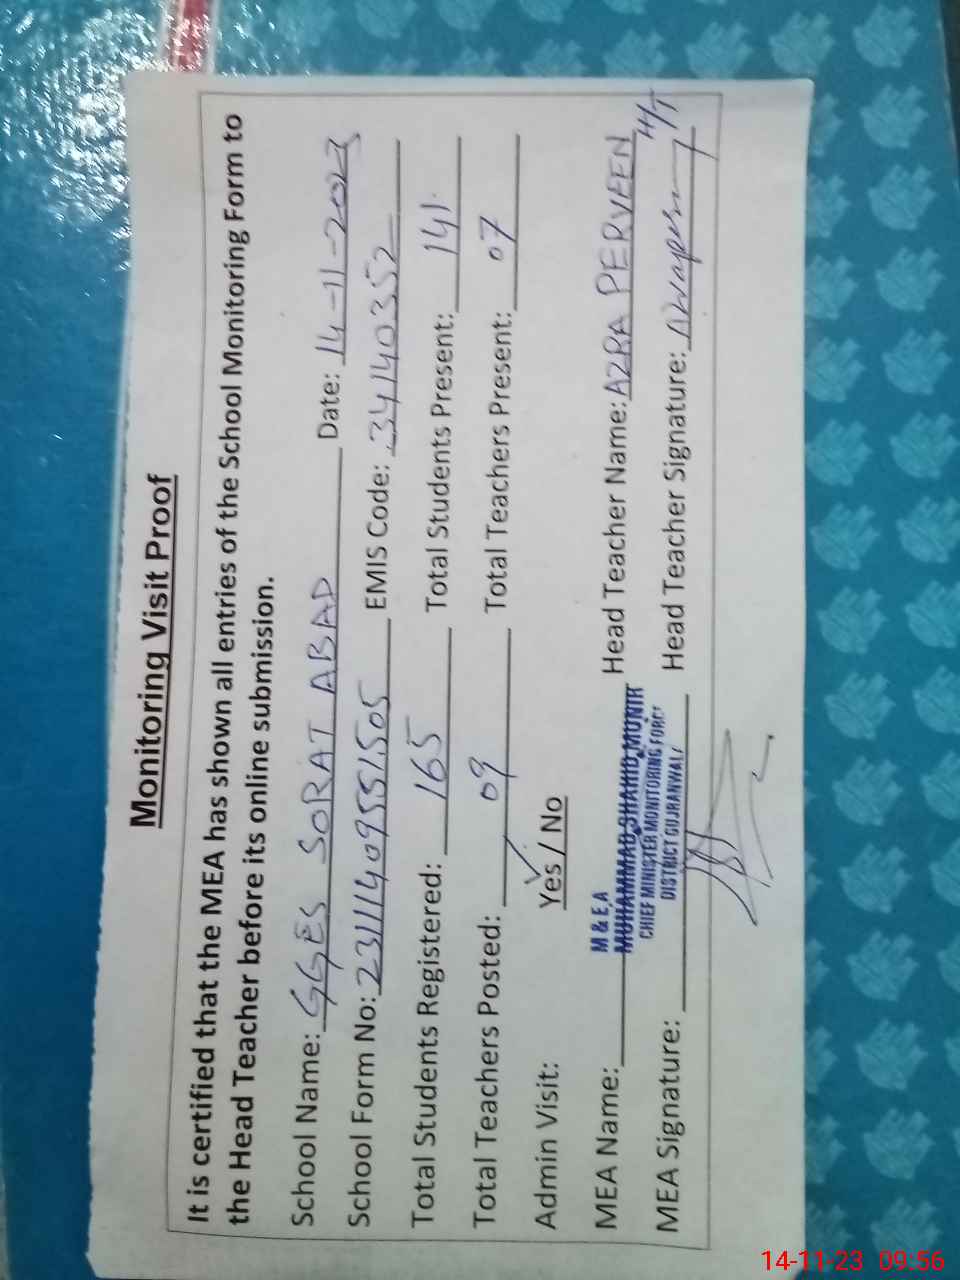 Monitoring Visit Proof
It is certified that the MEA has shown all entries of the School Monitoring Form to
the Head Teacher before its online submission.
School Name: GGES SORAT ABAD Date: 14-11-2023
School Form No: 23111409551505 EMIS Code: 34140352
Total Students Registered: 165 Total Students Present: 141
Total Teachers Posted: 09 Total Teachers Present: 07
Admin Visit: Yes / No
M & E A
MEA Name: MUHAMMAD SHAHID MUNIR Head Teacher Name: AZRA PERVEEN
CHIEF MINISTER MONITORING FORCE
DISTRICT GUJRANWALA
MEA Signature: Head Teacher Signature: H/T
14-11-23 09:56